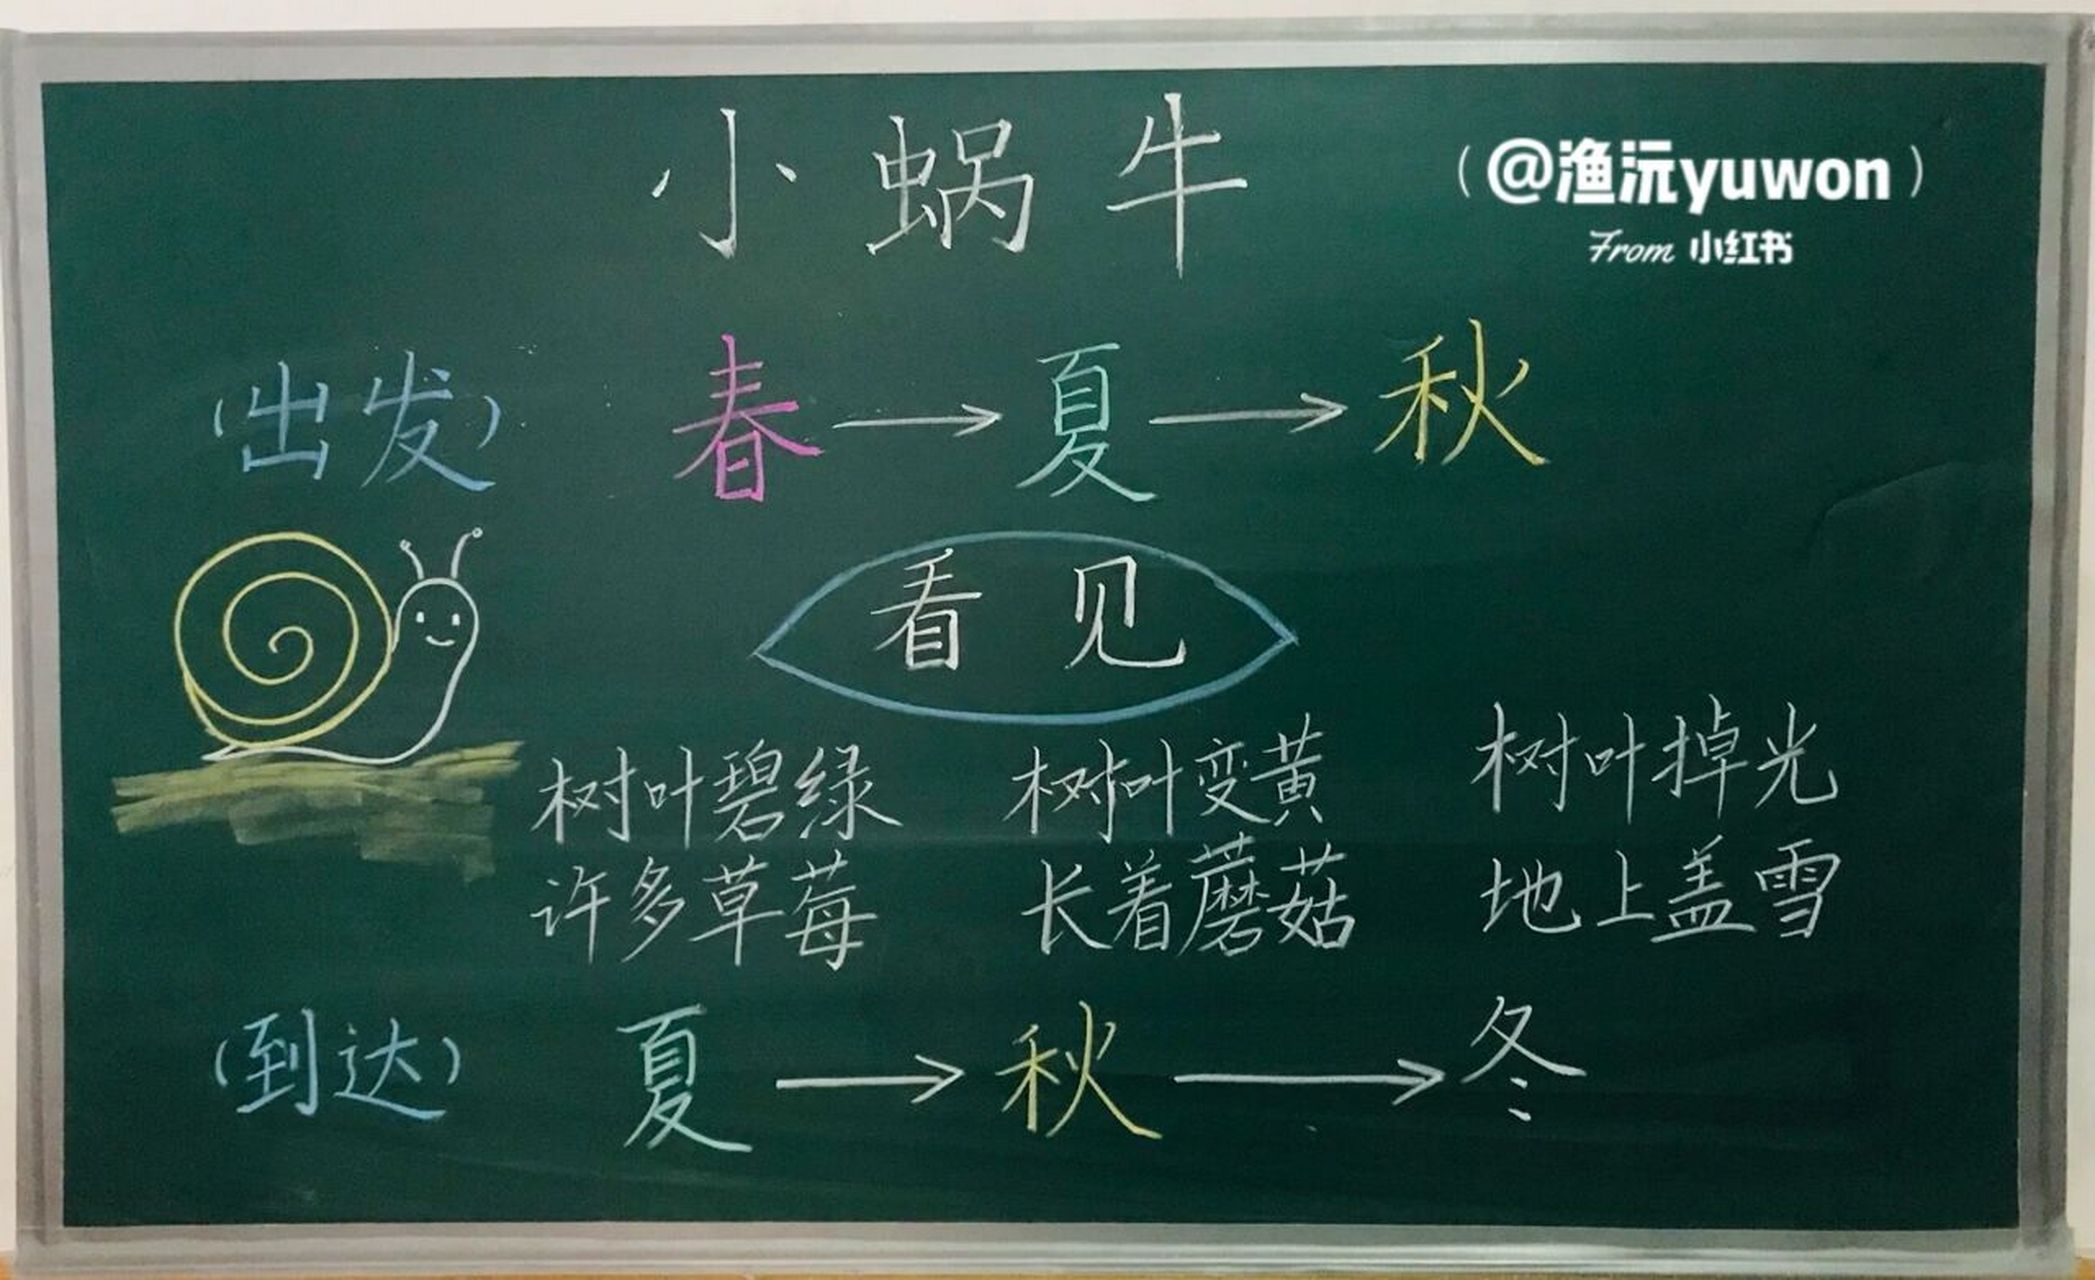 小蜗牛
(@渔沅yuwon)
From 小红书
(出发) 春→夏→秋
看见
树叶碧绿 树叶变黄 树叶掉光
许多草莓 长着蘑菇 地上盖雪
(到达) 夏→秋→冬